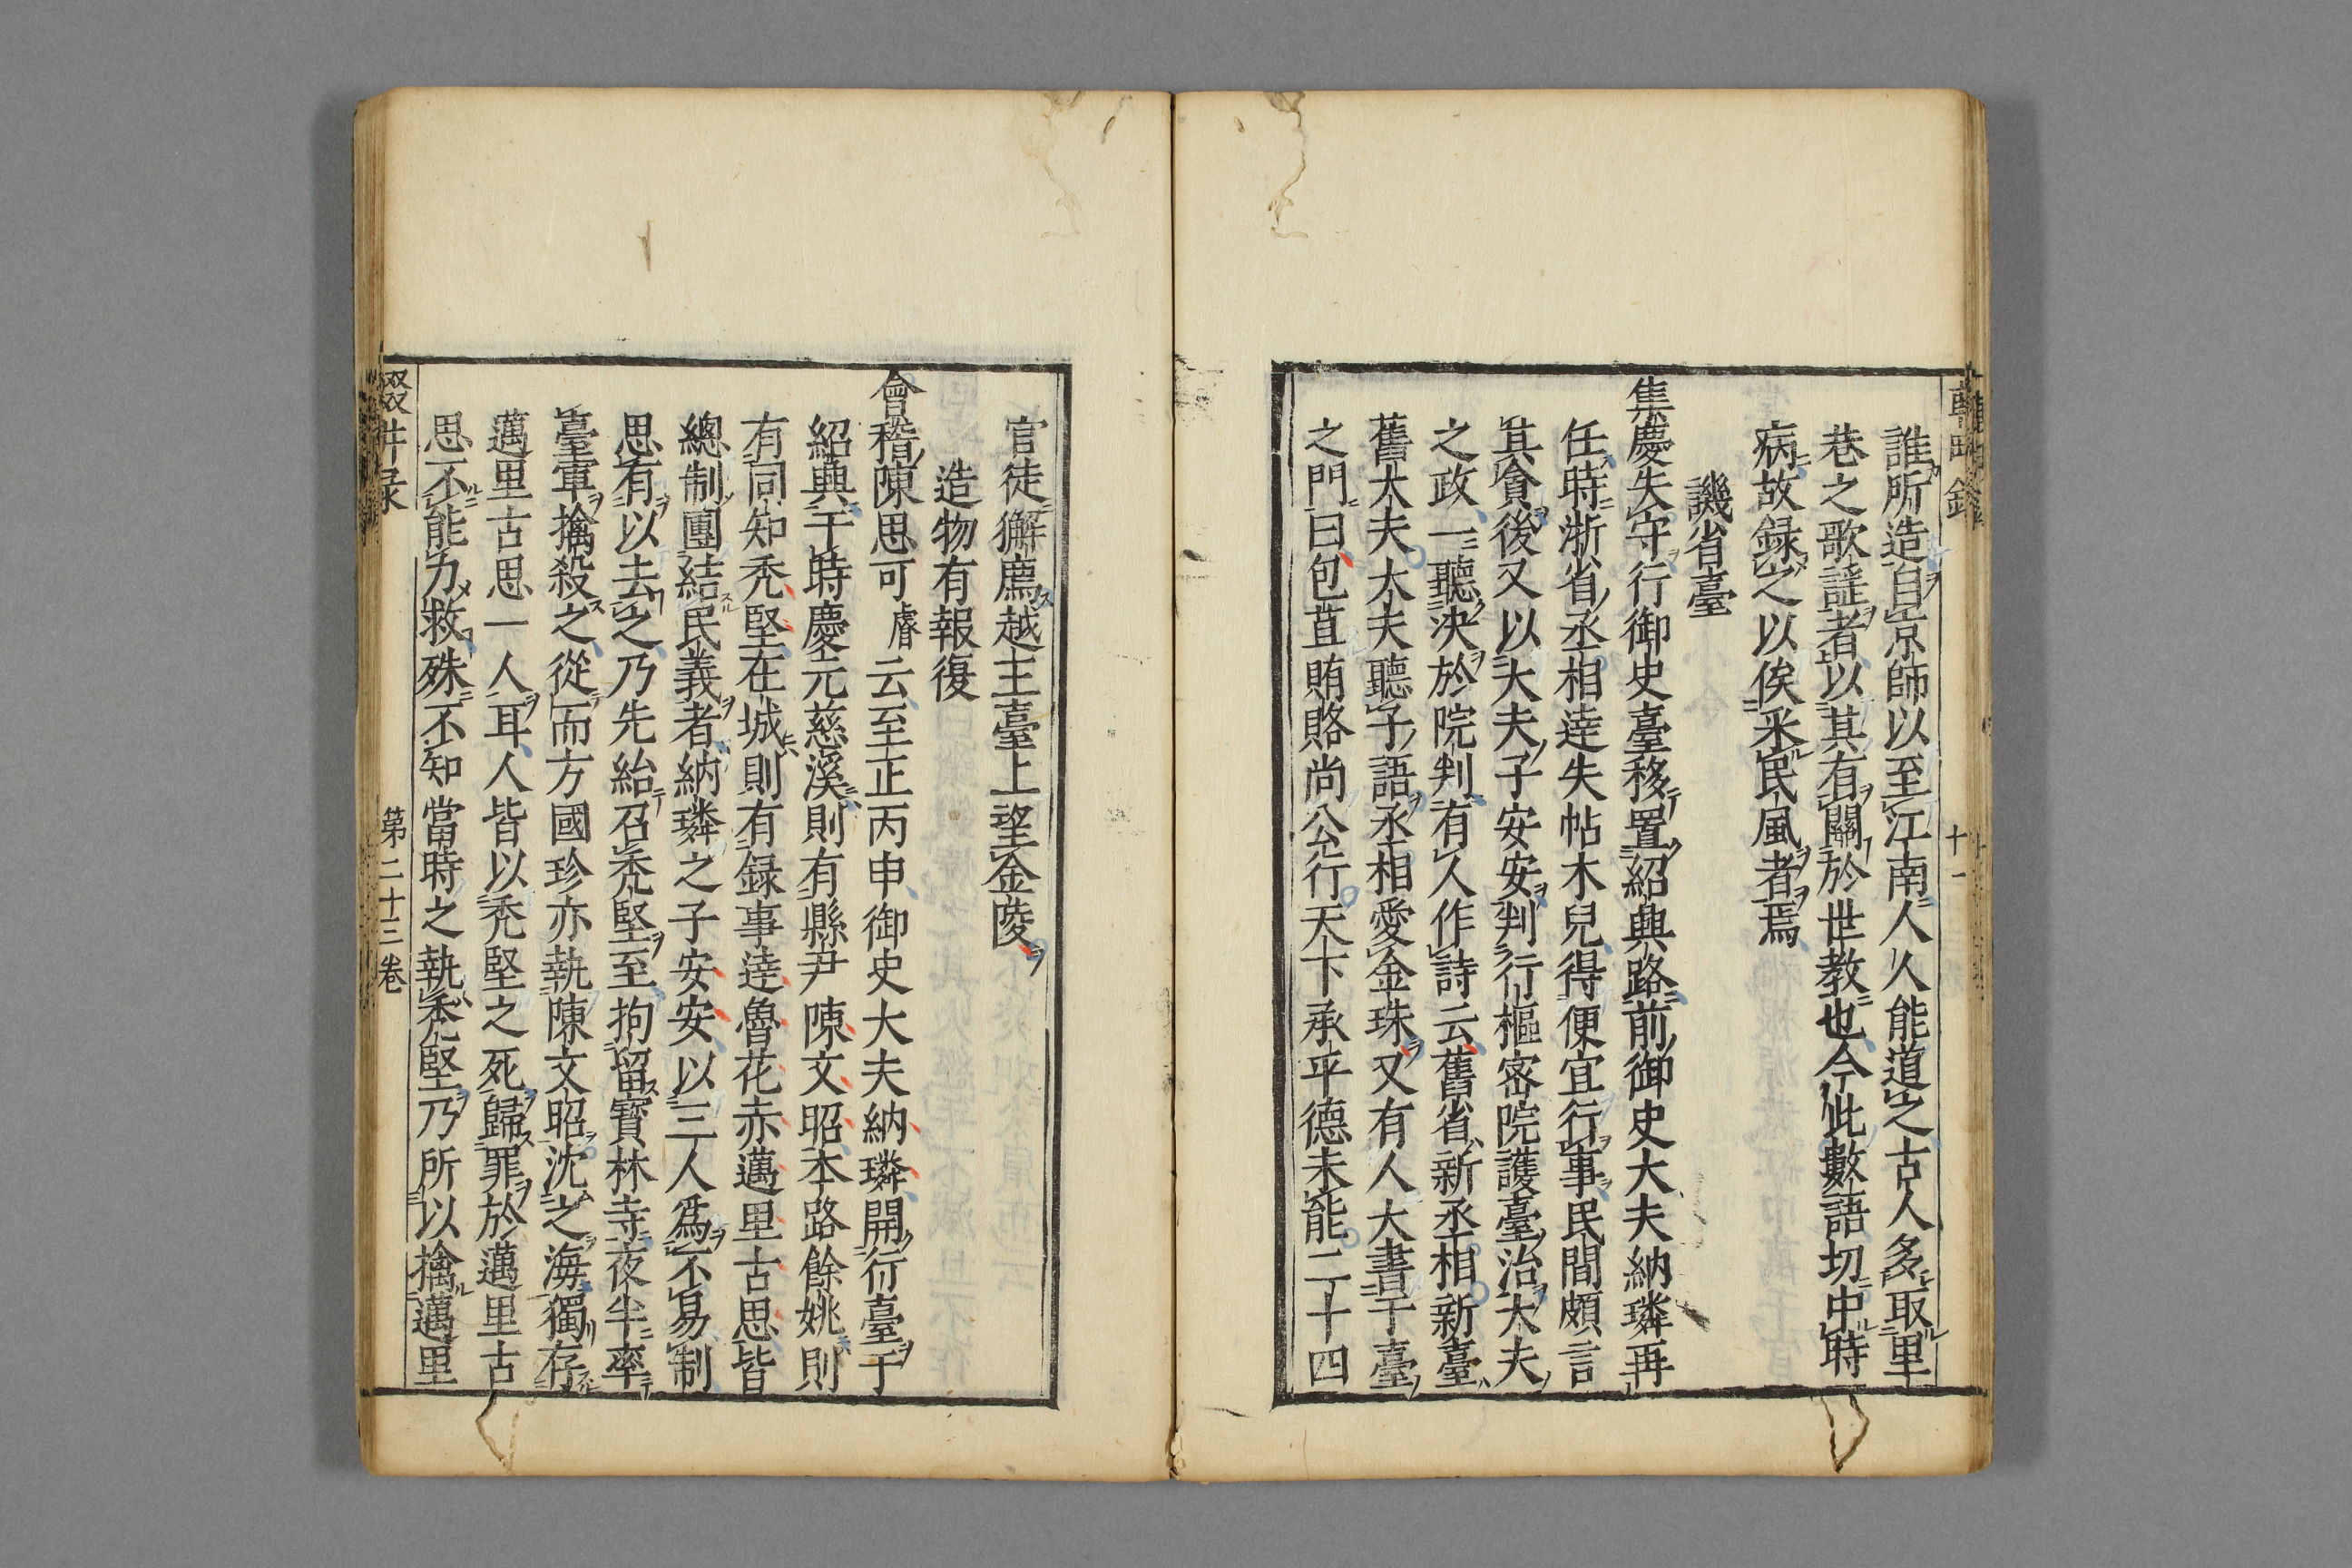 輟畊錄
十一
誰所造自京師以至江南人人能道之古人多取里
巷之歌謠者以其有關於世教也今此數語切中時
病故録之以俟采民風者焉
譏省臺
集慶失守行御史臺移置紹興路前御史大夫納璘再
任時浙省丞相達失帖木兒得便宜行事民間頗言
其貪後又以大夫子安安判行樞密院護臺治大夫
之政一聽決於院判有人作詩云舊省新丞相新臺
舊大夫大夫聽子語丞相愛金珠又有人大書于臺
之門曰包苴賄賂尚公行天下承平德未能二十四
官徒獬廌越王臺上望金陵
造物有報復
會稽陳思可睿云至正丙申御史大夫納璘開行臺于
紹興于時慶元慈溪則有縣尹陳文昭本路餘姚則
有同知禿堅在城則有録事達魯花赤邁里古思皆
總制團結民義者納璘之子安安以三人爲不易制
思有以去之乃先紿召禿堅至拘留寳林寺夜半率
臺軍擒殺之從而方國珍亦執陳文昭沈之海獨存
邁里古思一人耳人皆以禿堅之死歸罪於邁里古
思不能力救殊不知當時之執禿堅乃所以擒邁里
輟畊录
第二十三卷